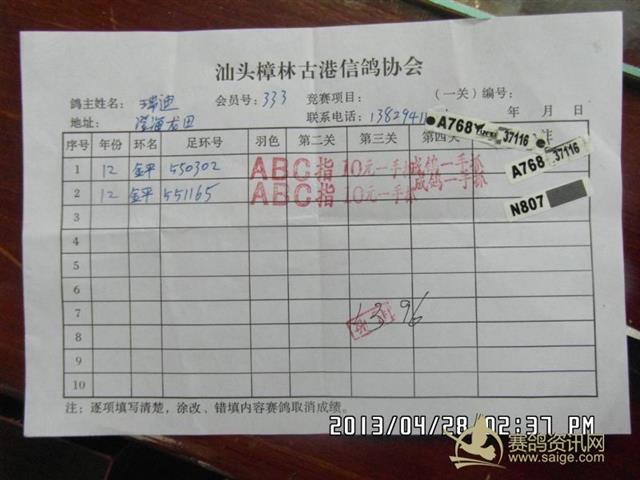 汕头樟林古港信鸽协会
鸽主姓名: 瑞迪 会员号: 333 竞赛项目: (一关) 编号:
地址: 澄海龙田 联系电话: 年 月 日
序号 年份 环名 足环号 羽色 第二关 第三关 第四关
1 12 金平 550302 ABC指 10元一手 成鸽一手抓
2 12 金平 551165 ABC指 10元一手 成鸽一手抓
3
4
5
6
7
8
9
10
A768 37116
A768 37116
N807
396
注: 逐项填写清楚, 涂改、错填内容赛鸽取消成绩。
2013/04/28 02:37 PM
赛鸽资讯网
www.saige.com